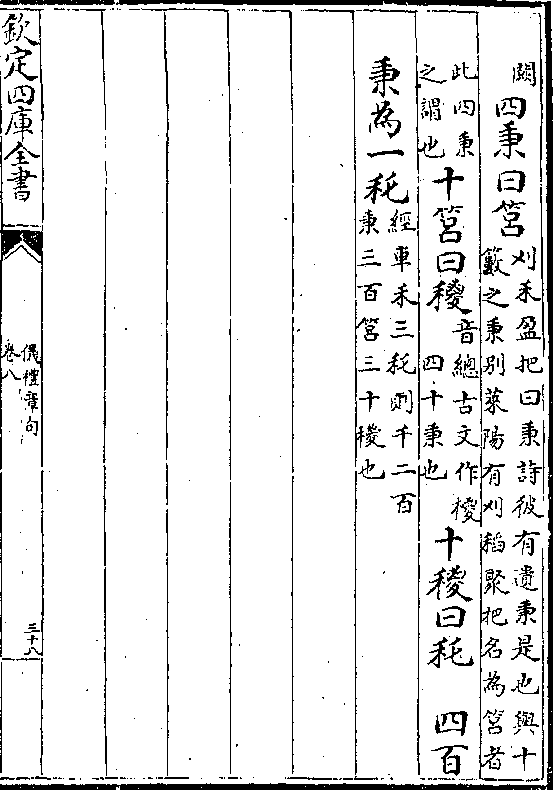 闕
四秉曰筥
刈禾盈把曰秉詩彼有遺秉是也與十
籔之秉别萊陽有刈稻聚把名為筥者
此四秉
之謂也
十筥曰稯
音總古文作椶
四十秉也
十稯曰秅　四百
秉為一秅
經車禾三秅則千二百
秉三百筥三十稯也
欽定四庫全書
儀禮章句
卷八
三十八